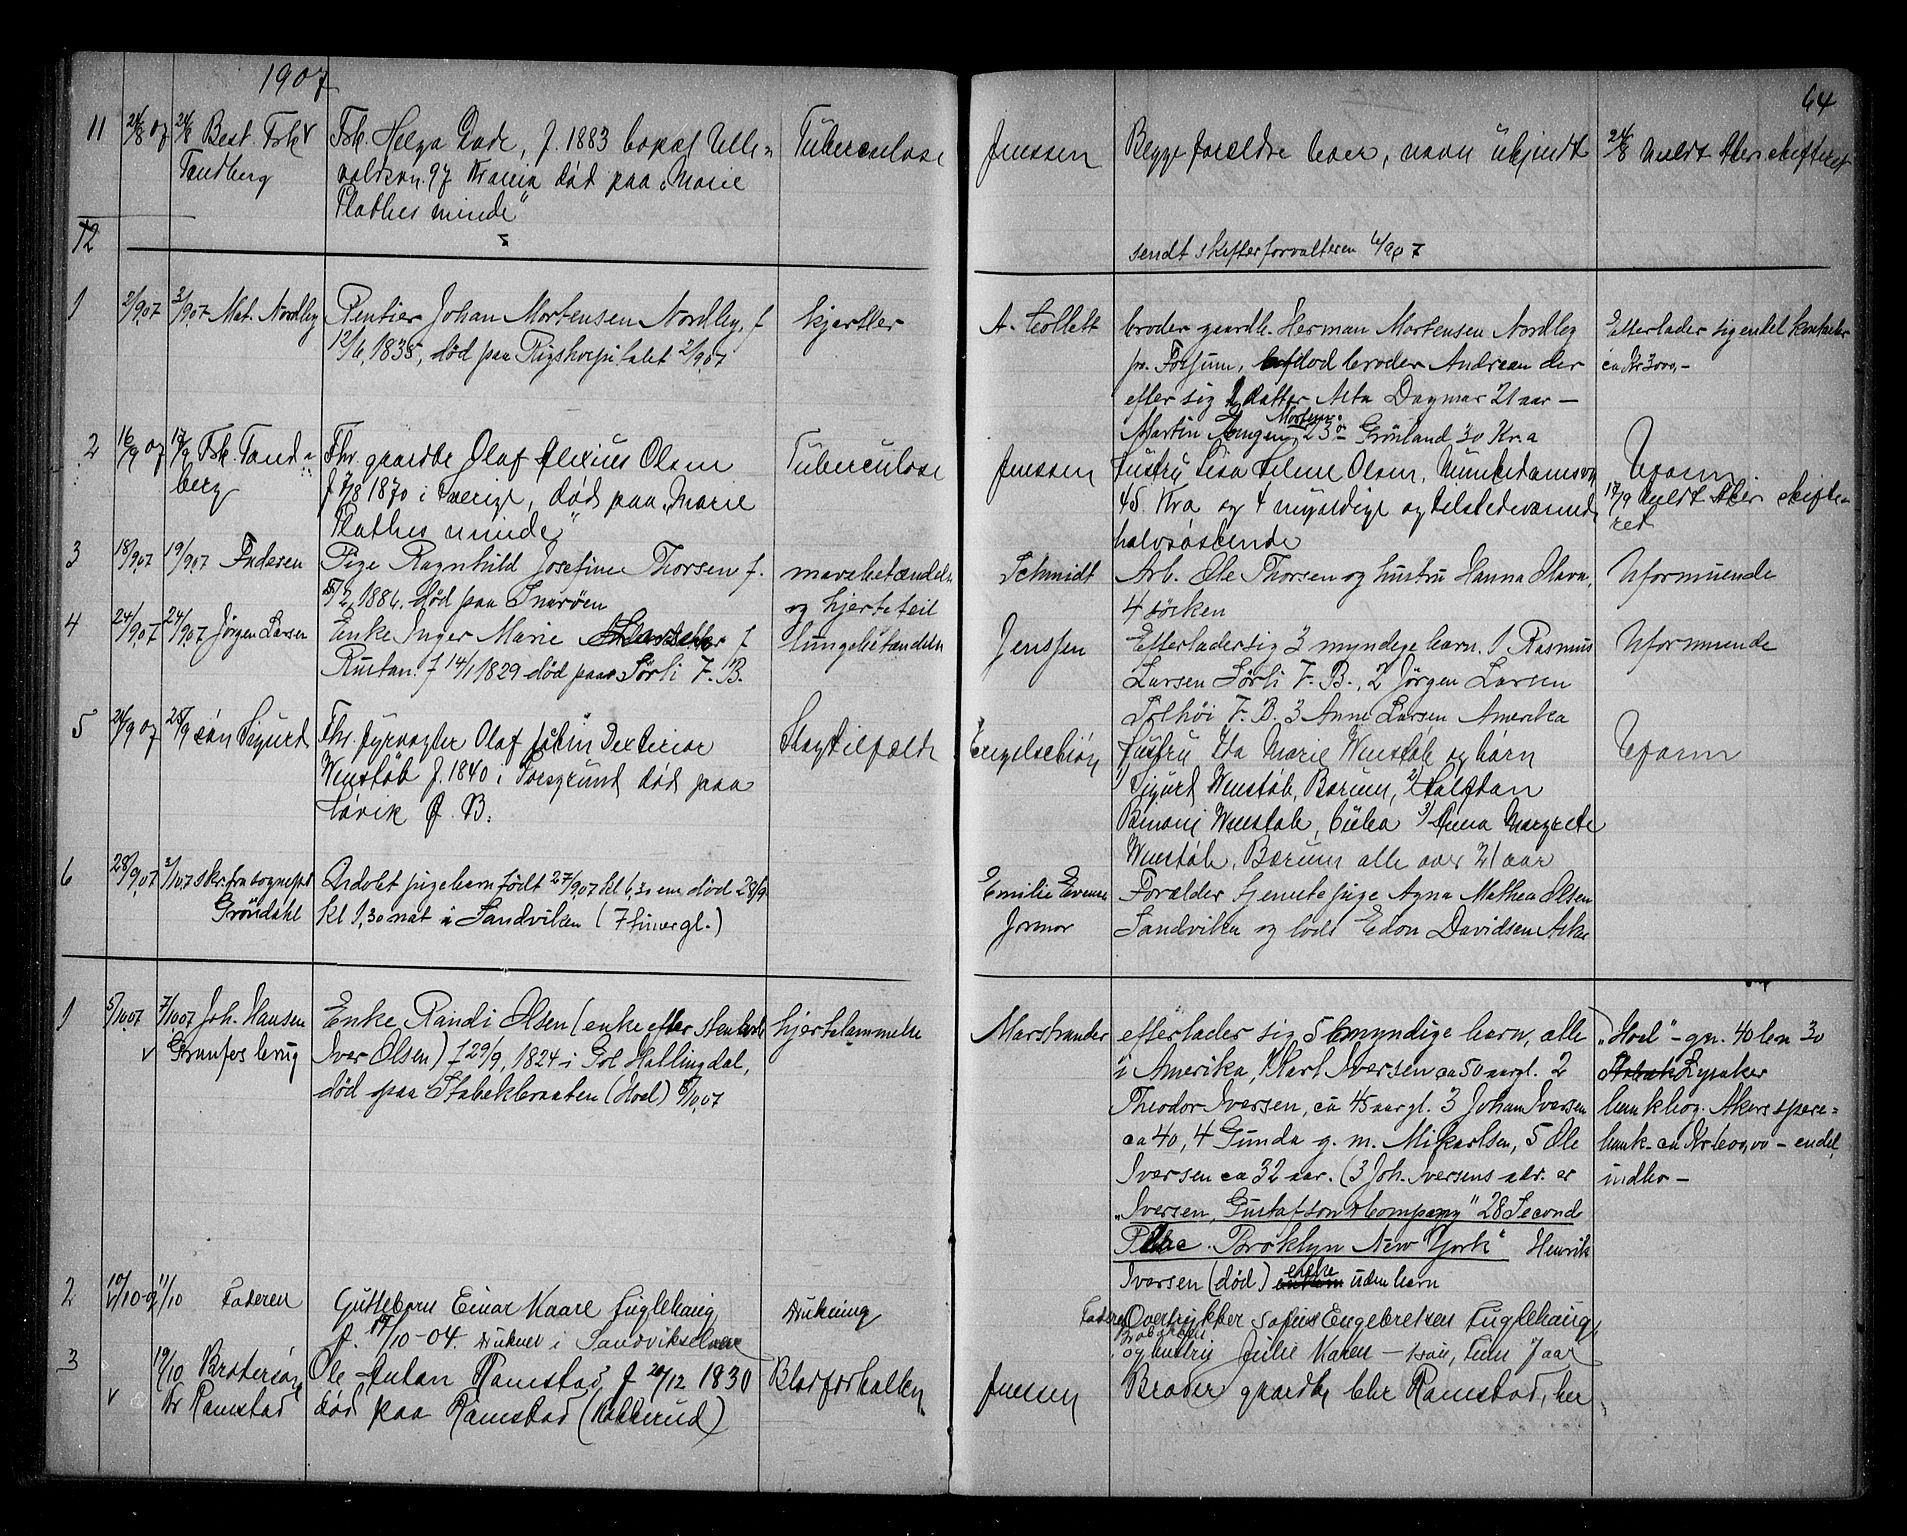 1907
64
11 24/8 07 24/8 Best. Frk
Tandberg
Frk. Helga Gade, f. 1883 bopæl Ulle-
valdsvn. 97 Krania død paa „Marie
Plathes minde"
Tuberculose
Jenssen
Begge forældre lever, navn ukjendt
24/8 Meldt Aker skifteret
12
sendt skifteforvalteren 6/9 07
1 2/9 07 3/9 07 Mat. Nordby
Rentier Johan Mortensen Nordby, f
12/6 1835, død paa Rigshospitalet 2/9 07
hjertler
A. Collett
broder gaardb. Herman Mortensen Nordby
pr. Fossum, død broder Andreas der
efter sig 1 datter Asta Dagmar 21 aar –
Martin Mortens. 23 Grönland 30 Kr.a
Efterlader sig endel kontanter
ca Kr 3000,-
2 16/9 07 17/9 Frk. Tand-
berg
Fhr. gaardbr Olaf Alexius Olsen
f 7/8 1870 i Sverige, død paa „Marie
Plathes minde"
Tuberculose
Jenssen
Hustru Lisa Helene Olsen, Munkedamsvn
45 Kra og 4 myndige og tilstedeværende
halvsöskende
Uform.
17/9 Meldt Aker skifte-
ret
3 18/9 07 19/9 07 Faderen
Pige Ragnhild Josefine Thorsen f.
5/2 1886. død paa Snaröen
mavebetændelse
og hjertefeil
Schmidt
Arb. Ole Thorsen og hustru Hanna Olava,
4 søsken
Uformuende
4 24/9 07 24/9 07 Jørgen Larsen
Enke Inger Marie f
Rustan. f 14/1 1829 død paa Sørli V. B.
lungebetændelse
Jenssen
Efterlader sig 3 myndige barn. 1 Rasmus
Larsen Sörli V. B., 2 Jørgen Larsen
Solhöi V. B. 3 Anne Larsen Amerika
Uformuende
5 24/9 07 25/9 sön Sigurd
Fhr. fyrvogter Olaf Jakin Dexterior
Wenstöb f. 1840 i Porsgrund død paa
Hövik Ø. B.
Slagtilfælde
Engelschiön
Hustru Ida Marie Wenstöb og börn
1) Sigurd Wenstöb, Bærum, 2) Halfdan
Benoni Wenstöb, Cuba 3) Anna Margrete
Wenstöb, Bærum alle over 21 aar
Uform
6 28/9 07 3/10 7 skr. fra sogneprest
Gröndahl
Udöbt pigebarn födt 27/9 07 kl 6,30 em död 28/9
kl 1,30 nat i Sandviken (7 timer gl.)
Emilie Evensen
Jormor
Forælder tjenstepige Agna Mathea Olsen
Sandvika og lods Edon Davidsen Asker
1 5/10 07 7/10 07 Joh. Hansen
Granfos brug
Enke Randi Olsen (enke efter stenhugger
Iver Olsen) f 29/9, 1824 i Gol Hallingdal,
död paa Stabekbraaten (Hoel) 5/10 07
hjertelammelse
Marstrander
efterlader sig 5 myndige barn, alle
i Amerika, 1 Karl Iversen ca 50 aar gl. 2
Theodor Iversen, ca 45 aar gl. 3 Johan Iversen
ca 40, 4 Gunda g. m. Mikaelsen, 5 Ole
Iversen ca 32 aar. (3 Joh. Iversens adr. er
„Iversen, Gustafson & Company" 28 Seconde
Place. Broklyn New York" Henrik
Iversen (död) enke uden barn
„Hoel" – gn. 40 bn 30
Stabæk Lysaker
bankbog. Akers spare-
bank. ca Kr 600,00 – endel
indbo –
2 10/10-07 11/10 Faderen
Guttebarn Einar Kaare Fuglehaug
f. 17/10-04. druknet i Sandvikselven
drukning
Faderen Overtrykker Sofus Engebretsen Fuglehaug,
og hustru Julie Karen –
3 19/10 Brodersön
Kr Ramstad
Ole Antan Ramstad f 20/12 1830
død paa Ramstad (Katterud)
Blodforkalkn.
Jenssen
Broder gaardbr Chr Ramstad, her